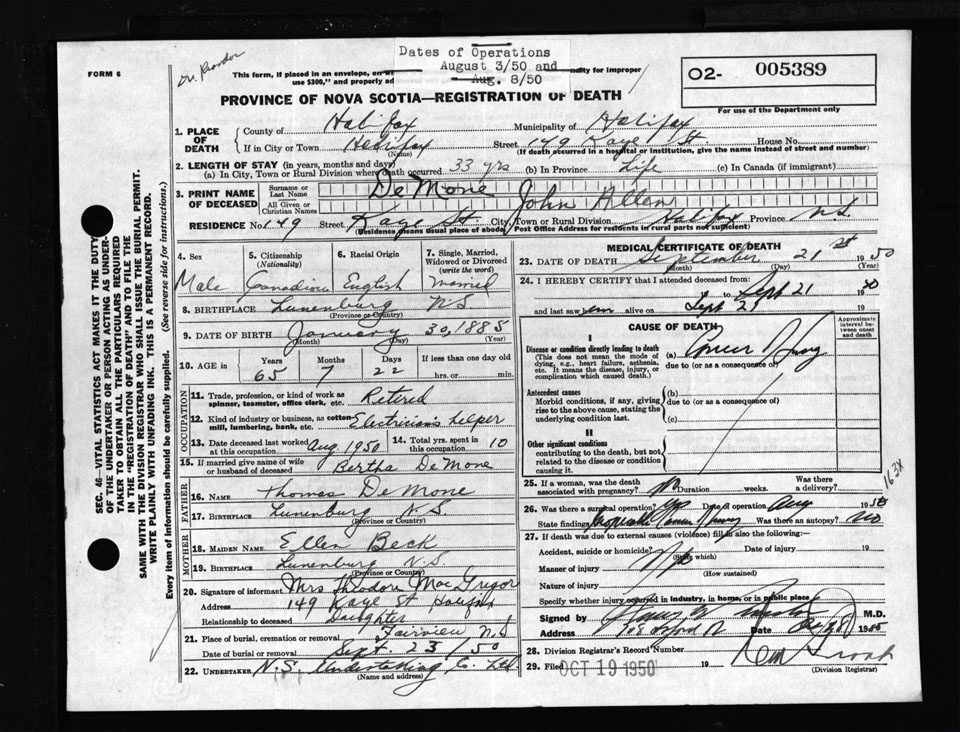 Dates of Operations
August 3/50 and
Aug. 8/50
FORM 6
This form, if placed in an envelope, on
use $300," and properly ad
nalty for improper
O2- 005389
For use of the Department only
PROVINCE OF NOVA SCOTIA—REGISTRATION OF DEATH
1. PLACE OF DEATH
County of Halifax Municipality of Halifax
If in City or Town Halifax Street 149 Kaye St. House No.
(Name) (If death occurred in a hospital or institution, give the name instead of street and number)
2. LENGTH OF STAY (in years, months and days)
(a) In City, Town or Rural Division where death occurred 33 yrs (b) In Province Life (c) In Canada (if immigrant)
3. PRINT NAME OF DECEASED
Surname or Last Name DeMone
All Given or Christian Names John Allen
RESIDENCE No. 149 Street Kaye St. City, Town or Rural Division Halifax Province N.S.
(Residence means usual place of abode, Post Office Address for residents in rural parts not sufficient)
4. Sex Male
5. Citizenship (Nationality) Canadian
6. Racial Origin English
7. Single, Married, Widowed or Divorced (write the word) Married
8. BIRTHPLACE Lunenburg N S
(Province or Country)
9. DATE OF BIRTH January 30, 1885
(Month) (Day) (Year)
10. AGE in Years 65 Months 7 Days 22 If less than one day old hrs. or min.
OCCUPATION
11. Trade, profession, or kind of work as spinner, teamster, office clerk, etc. Retired
12. Kind of industry or business, as cotton-mill, lumbering, bank, etc. Electricians helper
13. Date deceased last worked at this occupation Aug 1950
14. Total yrs. spent in this occupation 10
15. If married give name of wife or husband of deceased Bertha DeMone
FATHER
16. NAME Thomas DeMone
17. BIRTHPLACE Lunenburg N.S
(Province or Country)
MOTHER
18. MAIDEN NAME Ellen Beck
19. BIRTHPLACE Lunenburg N.S.
(Province or Country)
20. Signature of informant Mrs Theodore Mac Gregor
Address 149 Kaye St Halifax
Relationship to deceased Daughter
21. Place of burial, cremation or removal Fairview N.S
Date of burial or removal Sept. 23/50
22. UNDERTAKER N.S. Undertaking Co. Ltd
(Name and address)
MEDICAL CERTIFICATE OF DEATH
23. DATE OF DEATH September 21st 1950
(Month) (Day) (Year)
24. I HEREBY CERTIFY that I attended deceased
from to Sept 21 1950
and last saw him alive on Sept 21
CAUSE OF DEATH
Approximate interval between onset and death
I
Disease or condition directly leading to death
(This does not mean the mode of dying, e.g., heart failure, asthenia, etc. It means the disease, injury, or complication which caused death.)
(a) Cancer Lung
due to (or as a consequence of)
Antecedent causes
Morbid conditions, if any, giving rise to the above cause, stating the underlying condition last.
(b)
due to (or as a consequence of)
(c)
II
Other significant conditions
contributing to the death, but not related to the disease or condition causing it.
163X
25. If a woman, was the death associated with pregnancy? No Duration weeks. Was there a delivery?
26. Was there a surgical operation? yes Date of operation Aug 1950
State findings Inoperable Cancer Lung Was there an autopsy? No
27. If death was due to external causes (violence) fill in also the following:—
Accident, suicide or homicide? Date of injury 19
(State which)
Manner of injury No
(How sustained)
Nature of injury
Specify whether injury occurred in industry, in home, or in public place
Signed by M.D.
Address Date 19
28. Division Registrar's Record Number
29. Filed OCT 19 1950 19
(Division Registrar)
SEC. 46—VITAL STATISTICS ACT MAKES IT THE DUTY
OF THE UNDERTAKER OR PERSON ACTING AS UNDER-
TAKER TO OBTAIN ALL THE PARTICULARS REQUIRED
IN THE "REGISTRATION OF DEATH" AND TO FILE THE
SAME WITH THE DIVISION REGISTRAR WHO SHALL ISSUE THE BURIAL PERMIT.
WRITE PLAINLY WITH UNFADING INK. THIS IS A PERMANENT RECORD.
Every item of information should be carefully supplied. (See reverse side for instructions.)